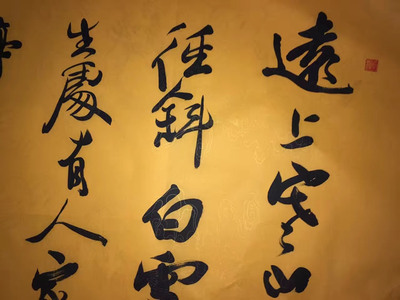 遠上寒山
徑斜白雲
生處有人家